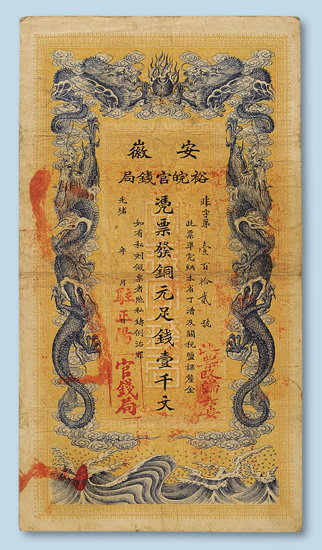 安徽
裕皖官錢局
非字第壹百拾貳號
此票準完納本省丁漕及關稅鹽課釐金
憑票發銅元足錢壹千文
如有私刻假票者照私鑄例治罪
光緒 年 月
駐正陽
官錢局